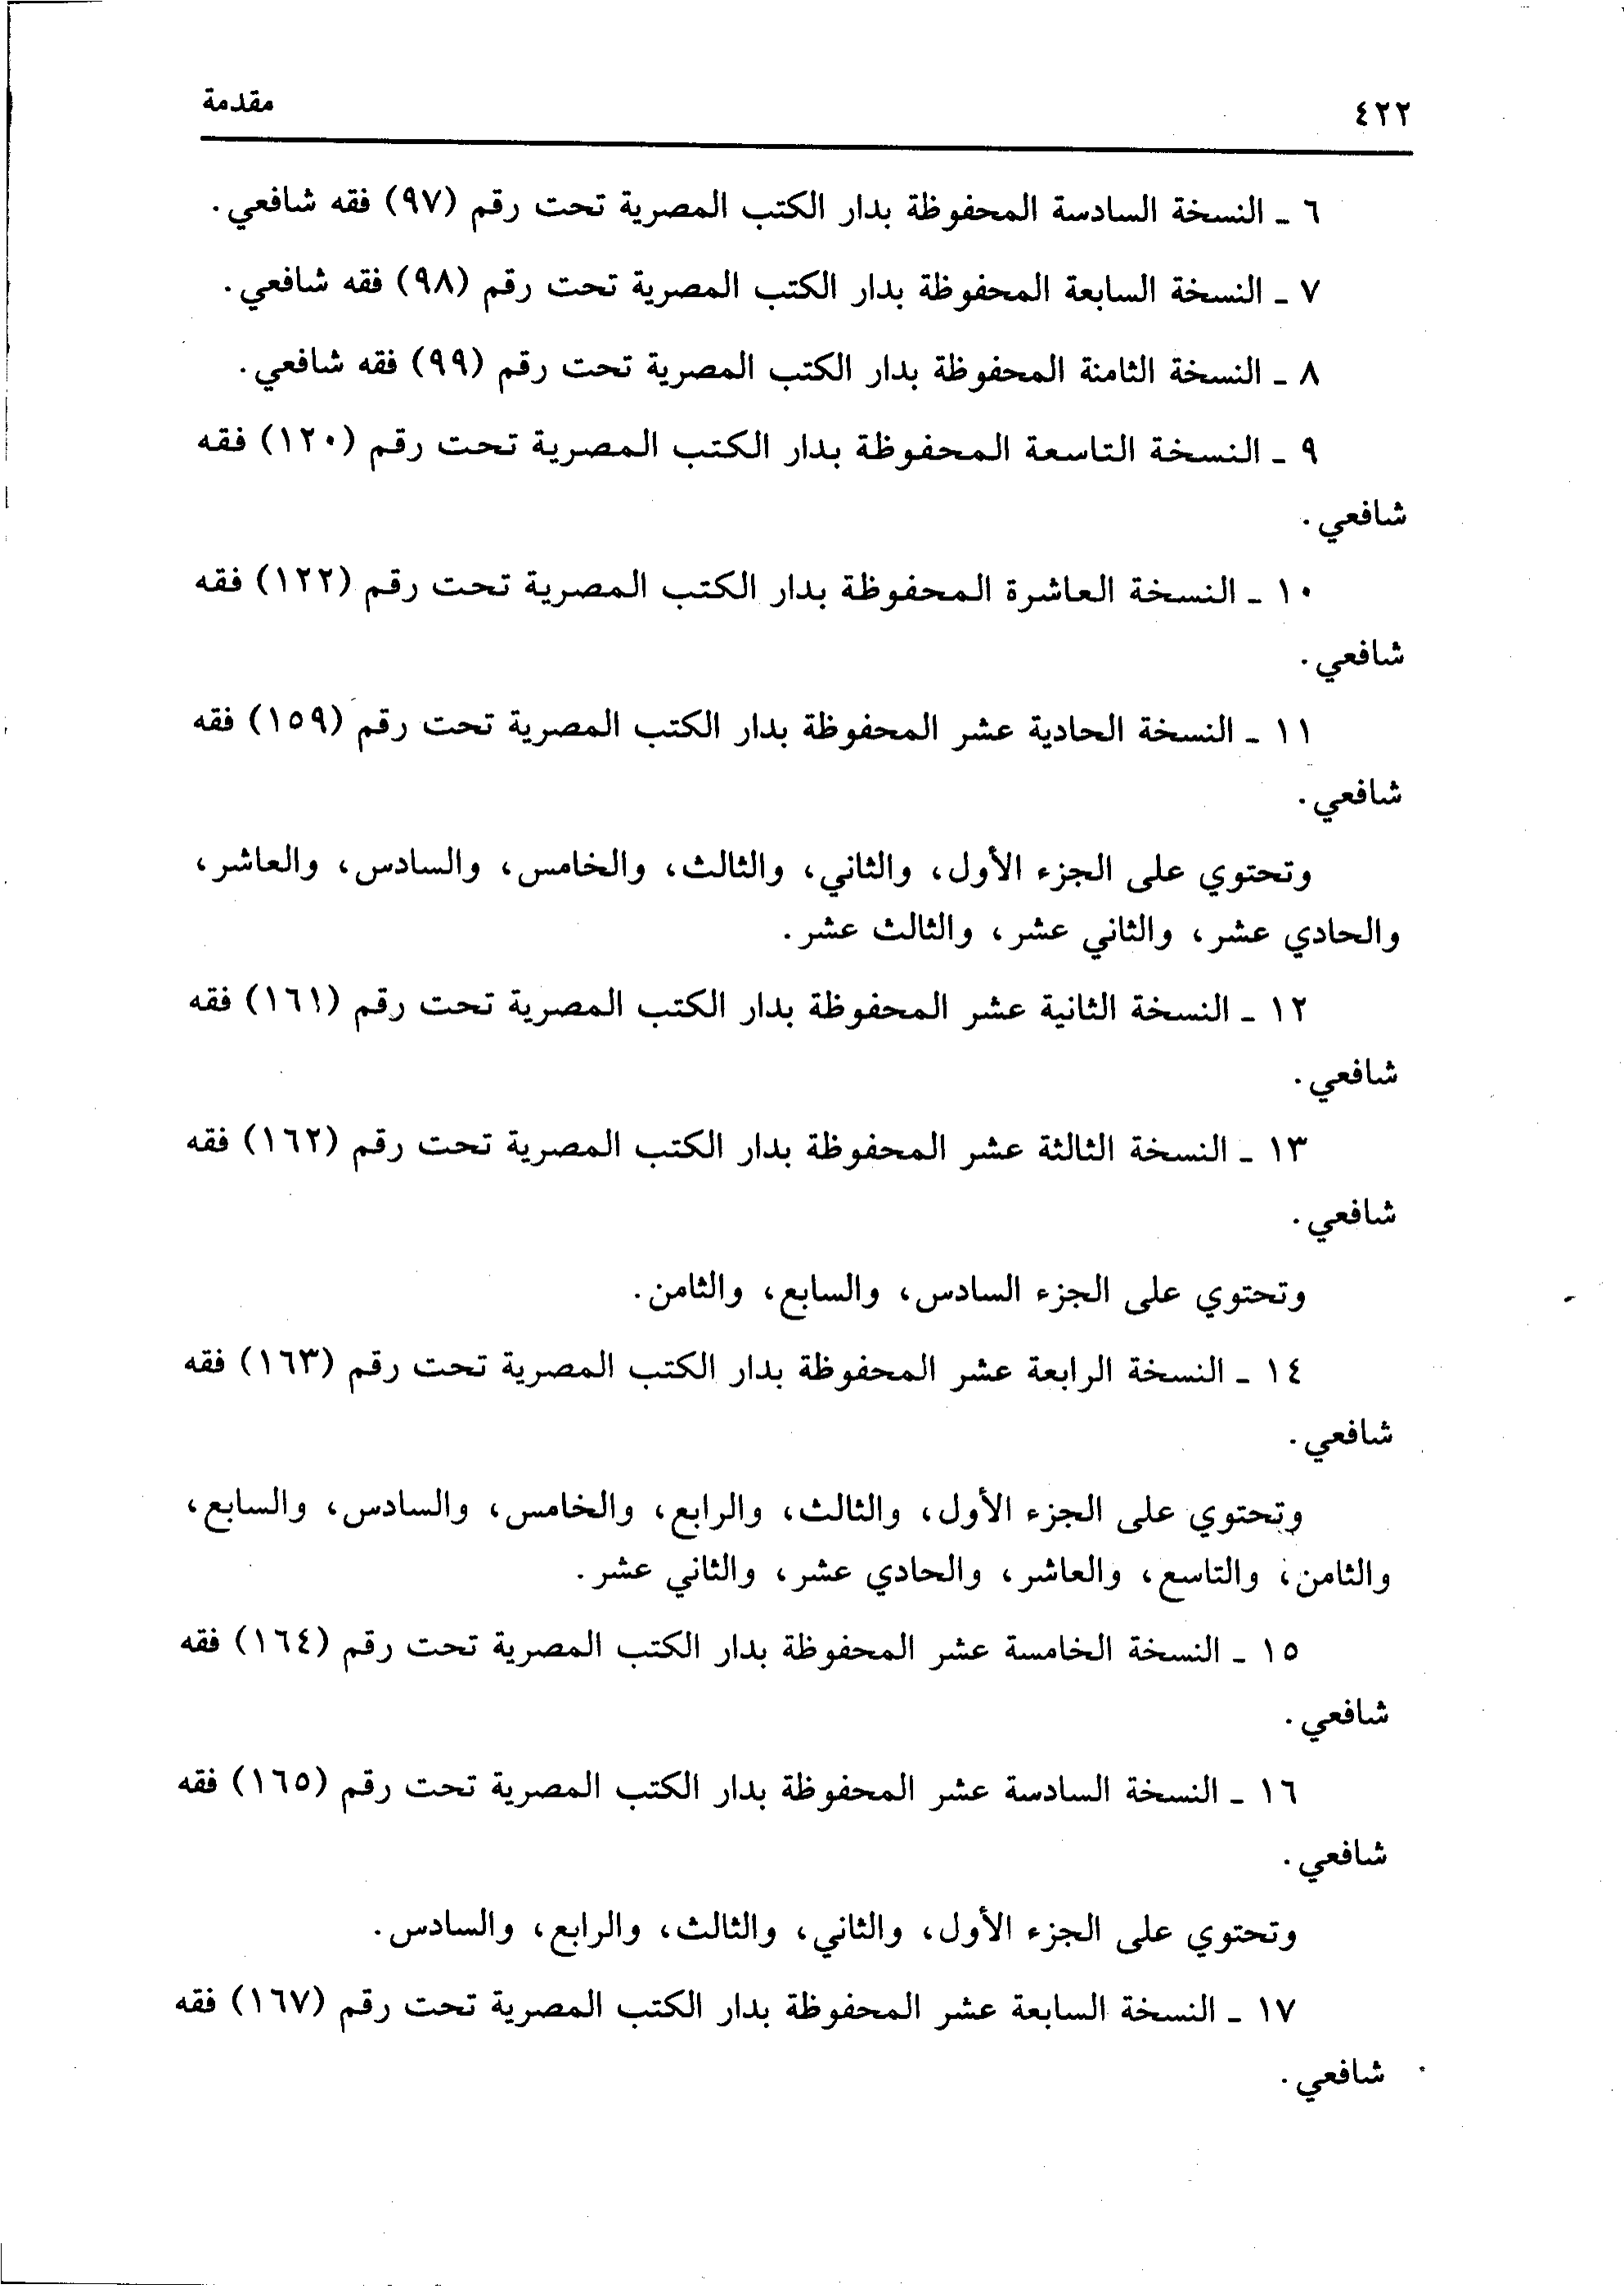 ٤٢٢
مقدمة
٦ ـ النسخة السادسة المحفوظة بدار الكتب المصرية تحت رقم (٩٧) فقه شافعي.
٧ ـ النسخة السابعة المحفوظة بدار الكتب المصرية تحت رقم (٩٨) فقه شافعي.
٨ ـ النسخة الثامنة المحفوظة بدار الكتب المصرية تحت رقم (٩٩) فقه شافعي.
٩ ـ النسخة التاسعة المحفوظة بدار الكتب المصرية تحت رقم (١٢٠) فقه
شافعي.
١٠ ـ النسخة العاشرة المحفوظة بدار الكتب المصرية تحت رقم (١٢٢) فقه
شافعي.
١١ ـ النسخة الحادية عشر المحفوظة بدار الكتب المصرية تحت رقم (١٥٩) فقه
شافعي.
وتحتوي على الجزء الأول، والثاني، والثالث، والخامس، والسادس، والعاشر،
والحادي عشر، والثاني عشر، والثالث عشر.
١٢ ـ النسخة الثانية عشر المحفوظة بدار الكتب المصرية تحت رقم (١٦١) فقه
شافعي.
١٣ ـ النسخة الثالثة عشر المحفوظة بدار الكتب المصرية تحت رقم (١٦٢) فقه
شافعي.
وتحتوي على الجزء السادس، والسابع، والثامن.
١٤ ـ النسخة الرابعة عشر المحفوظة بدار الكتب المصرية تحت رقم (١٦٣) فقه
شافعي.
وتحتوي على الجزء الأول، والثالث، والرابع، والخامس، والسادس، والسابع،
والثامن، والتاسع، والعاشر، والحادي عشر، والثاني عشر.
١٥ ـ النسخة الخامسة عشر المحفوظة بدار الكتب المصرية تحت رقم (١٦٤) فقه
شافعي.
١٦ ـ النسخة السادسة عشر المحفوظة بدار الكتب المصرية تحت رقم (١٦٥) فقه
شافعي.
وتحتوي على الجزء الأول، والثاني، والثالث، والرابع، والسادس.
١٧ ـ النسخة السابعة عشر المحفوظة بدار الكتب المصرية تحت رقم (١٦٧) فقه
شافعي.